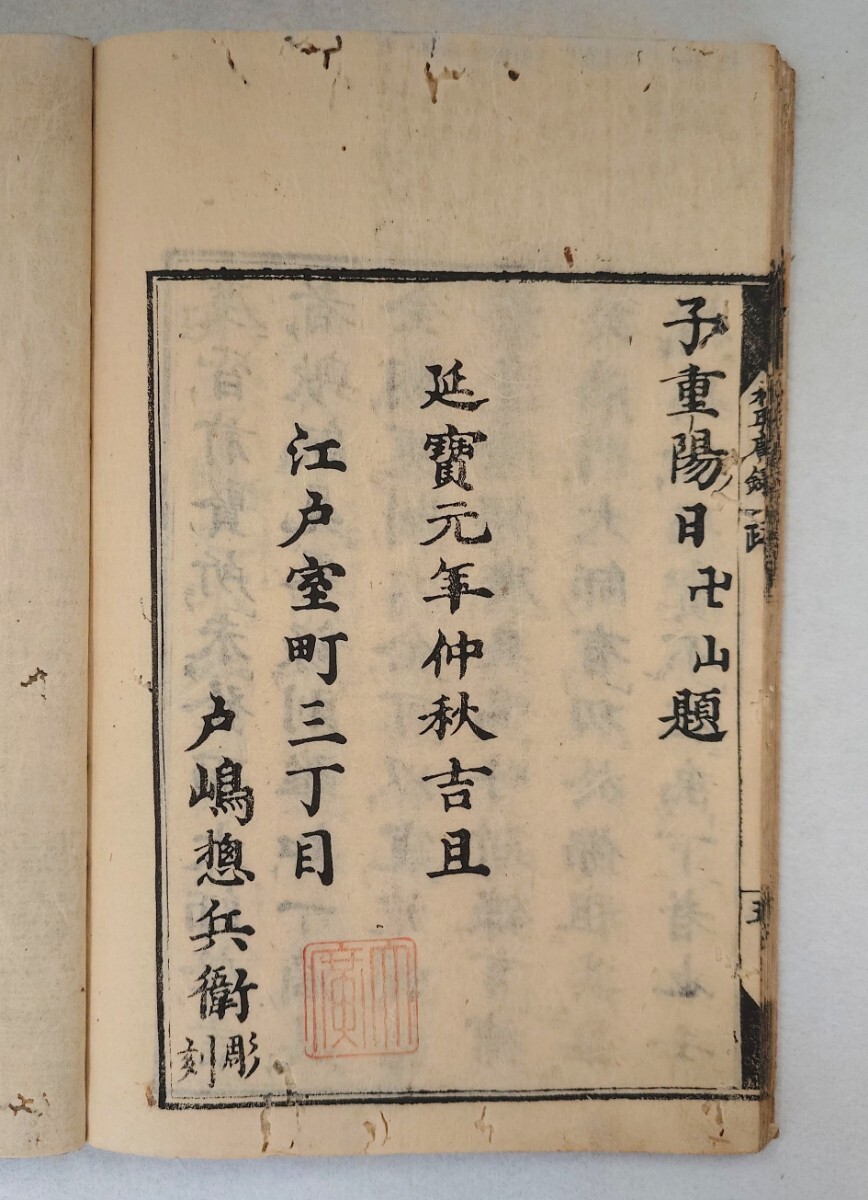 子重陽日卍山題
延寶元年仲秋吉旦
江户室町三丁目
户嶋惣兵衛彫刻